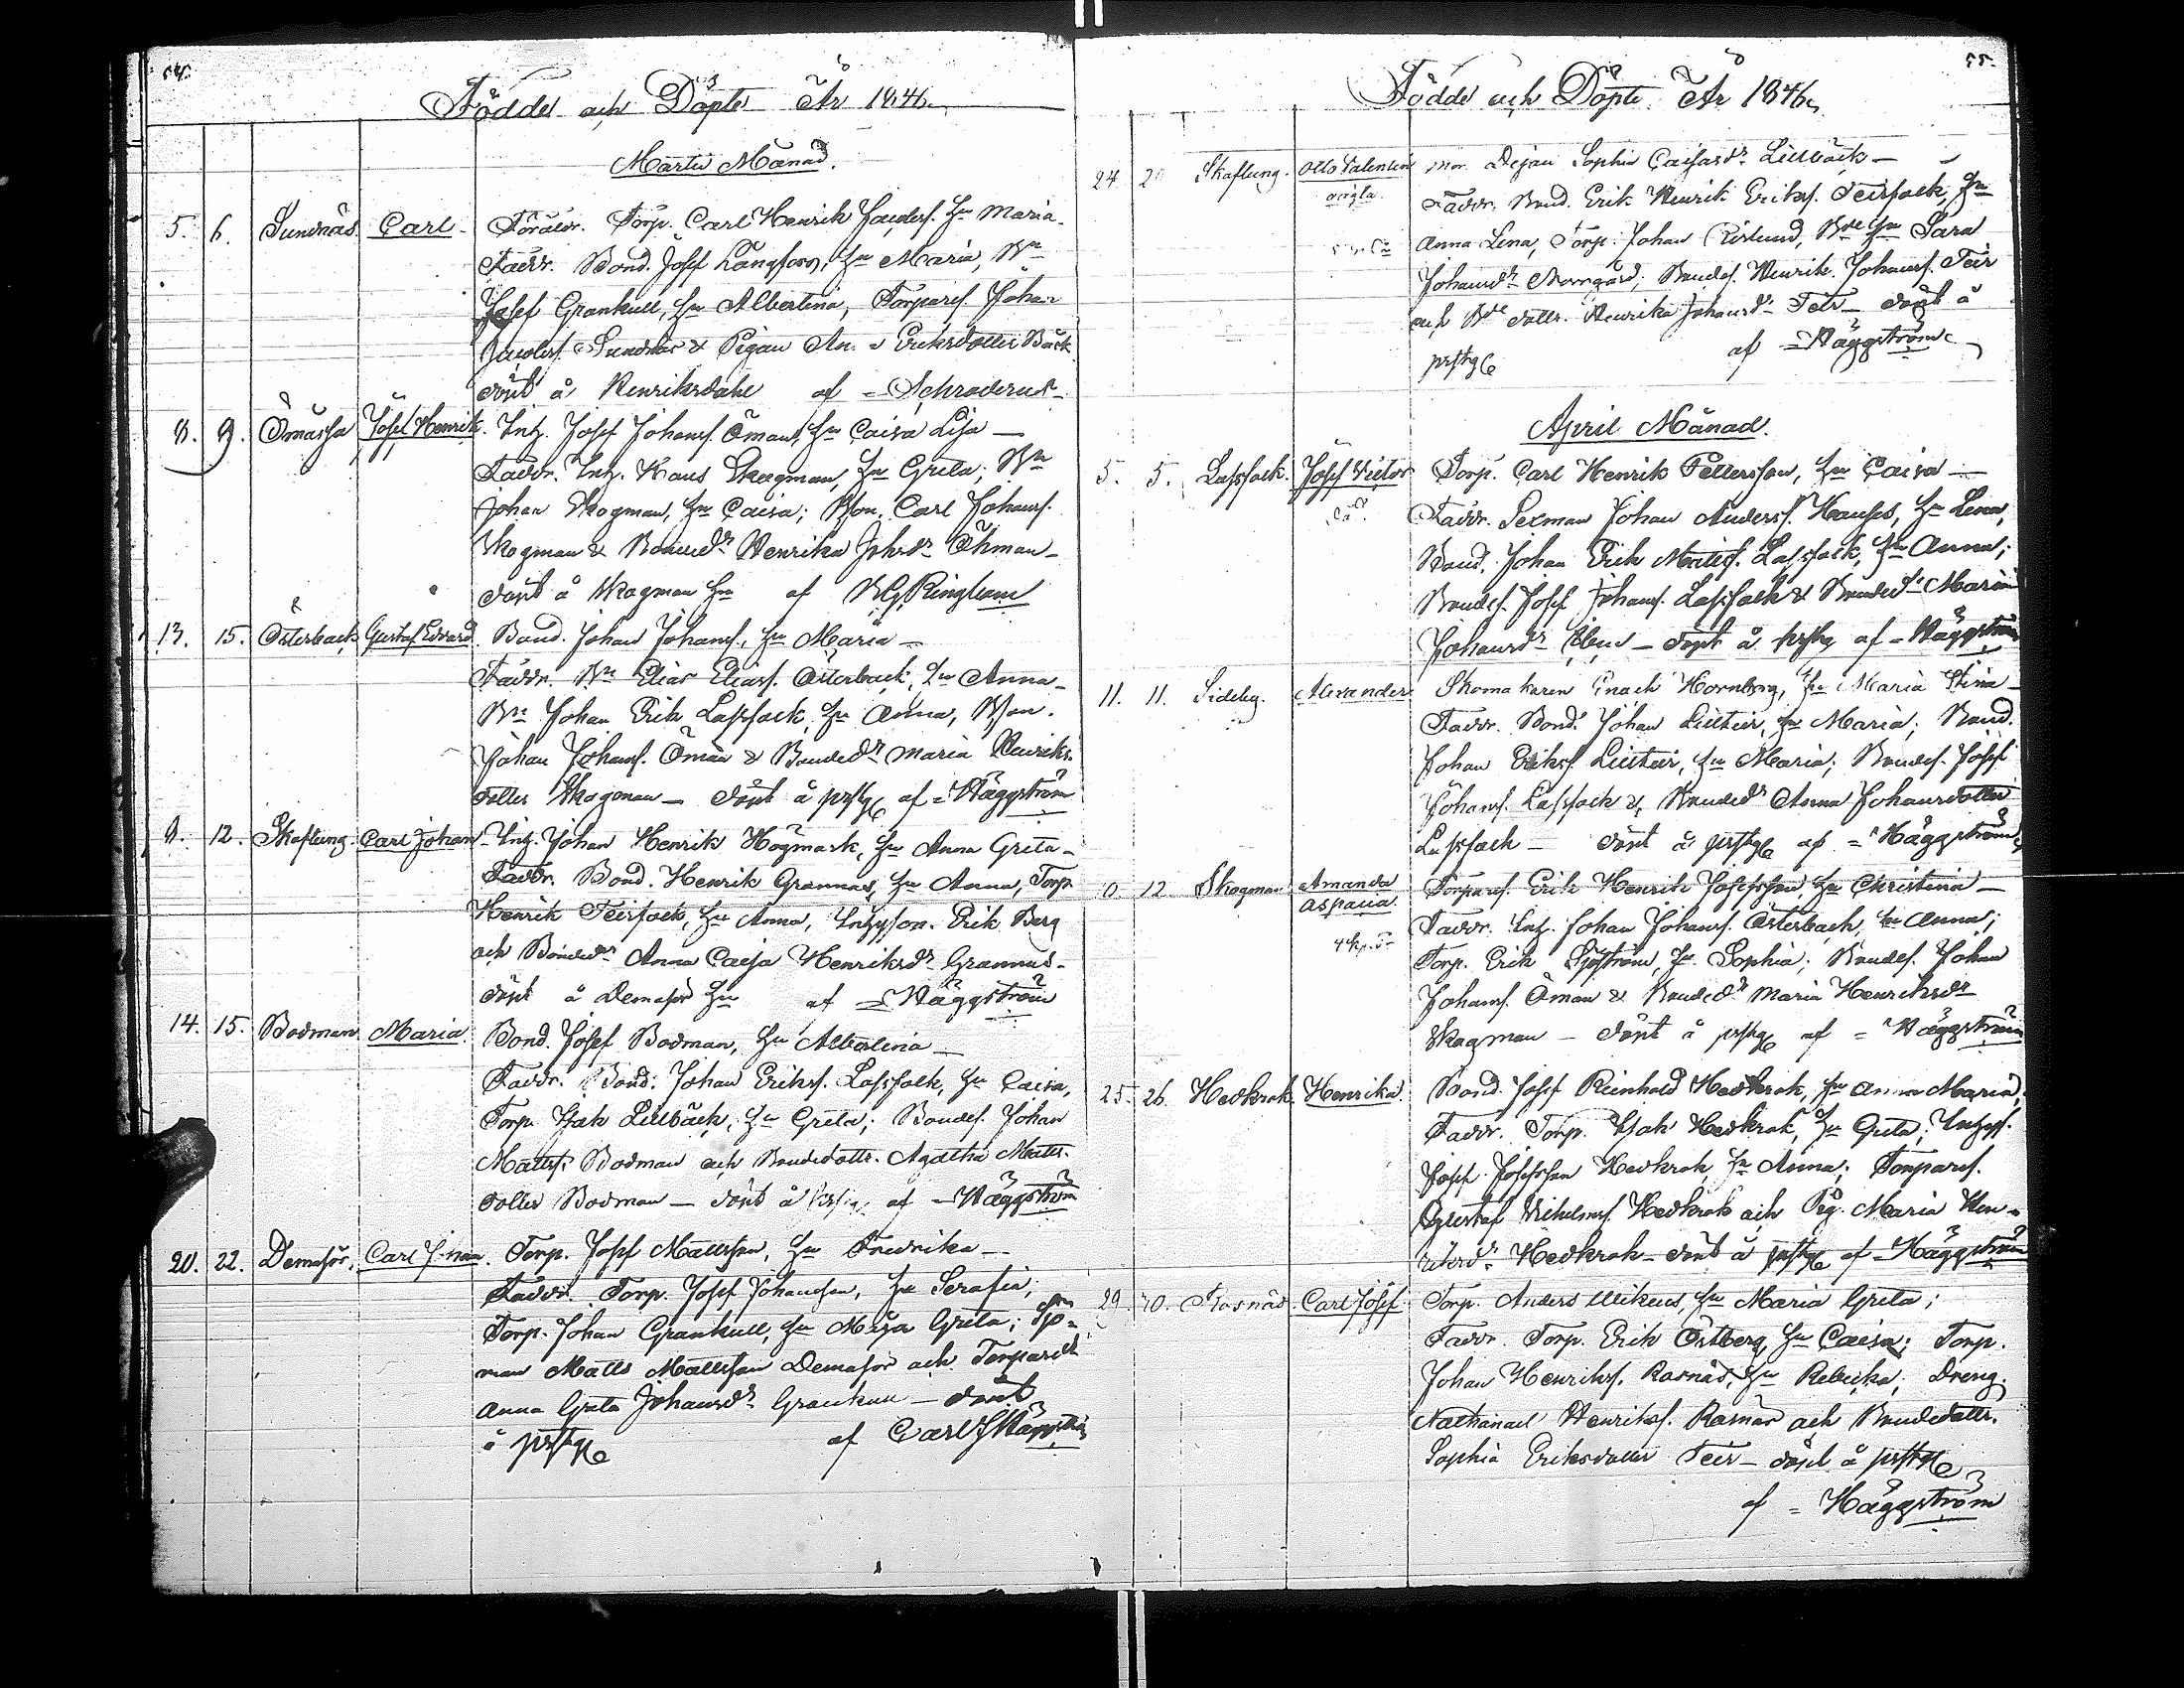 54.
Födde och Döpte År 1846.
Martii Månad.
5. 6. Sundnäs Carl Föräldr. Torp. Carl Henrik Jacobss. Hu Maria
Faddr. Bond. Josef Långfors, Hu Maria, Bn
Josef Grankull, Hu Albertina, Torpares. Johan
Jacobss. Sundnäs & Pigan Eriksdotter Bäck
döpt å Henriksdahl af Schroderus
8. 9. Ömossa Josef Henrik. Inh. Josef Johanss. Öman, Hu Caisa Lisa
Faddr. Inh. Hans Skogman, Hu Greta; Bn
Johan Skogman, Hu Caisa; Bson. Carl Johanss.
Skogman & Bonded. Henrika Johsdr Öhman
döpt å Skogman Hn af Ringbom
13. 15. Österback Gustaf Edvard. Bond. Johan Johanss., Hu Maria
Faddr. Bn Elias Eliass. Österback, Hu Anna
Bn Johan Erik Lassfolk, Hu Anna, Bson.
Johan Johanss. Öman & Bondedr Maria Henriks-
dotter Skogman döpt å prstg af Häggström
12. Skaftung Carl Johan Inh. Johan Henrik Högmark, Hu Anna Greta
Faddr. Bond. Henrik Grannas, Hu Anna, Torp.
Henrik Teirfolk, Hu Anna, Inhysson. Erik Berg
och Bondedr Anna Caisa Henriksdr Grannas
döpt å Demasör Hn af Häggström
14. 15. Bodman Maria. Bond. Josef Bodman, Hu Albertina
Faddr. Bond. Johan Erikss. Lassfolk, Hu Caisa,
Torp. Isak Lillbäck, Hu Greta; Bondes. Johan
Mattss. Bodman och Bondedottr. Agatha Matts-
dotter Bodman döpt å af Häggström
20. 22. Demasör. Carl Johan. Torp. Josef Mattsson, Hu Fredrika
Faddr. Torp. Josef Johansson, Hu Serafia;
Torp. Johan Grankull, Hu Maja Greta; Sjö-
man Matts Mattsson Demasör och Torparedr
Anna Greta Johansdr Grankull döpt
å prstg af Carl J Häggström
55.
Födde och Döpte År 1846.
24. Skaftung. Otto Valentin mor Dejan Sophia Caisasdr Lillbäck
oägta. Faddr. Bond. Erik Henrik Erikss. Teirfolk, Hu
Anna Lena, Torp. Johan Rislund, Hu Sara
Johansdr Norrgård; Bondes. Henrik Johanss. Teir
och dottr. Henrika Johansdr Teir döpt å
prstg af Häggström
April Månad.
5. 5. Lassfolk. Josef Victor Torp. Carl Henrik Pettersson, Hu Caisa
Faddr. Sexman Johan Anderss. Hanses, Hu Lena,
Bond. Johan Erik Mattss. Lassfolk, Hu Anna;
Bondes. Josef Johanss. Lassfolk & Bondedr Maria
Johansdr döpt å prstg af Häggström
11. 11. Sideby. Alexander Skomakaren Enach Hornborg, Hu Maria Stina
Faddr. Bond. Johan Lillteir, Hu Maria; Bond.
Johan Erikss. Lillteir, Hu Maria; Bondes. Josef
Johanss. Lassfolk & Bondedr Anna Johansdotter
Lassfolk döpt å prstg af Häggström
12. Skogman Amanda Torpares. Erik Henrik Josefsson, Hu Christina
Aspasia. Faddr. Inh. Johan Johanss. Österback, Hu Anna;
Torp. Erik Sjöström, Hu Sophia; Bondes. Johan
Johanss. Öman & Bondedr Maria Henriksdr
Skogman döpt å prstg af Häggström
25. 26. Hedkrok Henrika. Bond. Josef Reinhold Hedkrok, Hu Anna Maria,
Faddr. Torp. Isak Hedkrok, Hu Greta; Inhyss.
Josef Josefsson Hedkrok, Hu Anna; Torpares.
Gustaf Vilhelmss. Hedkrok och Pig. Maria Hen-
riksdr Hedkrok döpt å prstg af Häggström
29. 30. Rosnäs. Carl Josef Torp. Anders Mikels, Hu Maria Greta;
Faddr. Torp. Erik Östberg, Hu Caisa; Torp.
Johan Henrikss. Rosnäs, Hu Rebecka; Dreng.
Nathanael Henrikss. Rosnäs och Bondedottr.
Sophia Eriksdotter Teir döpt å prstg
af Häggström